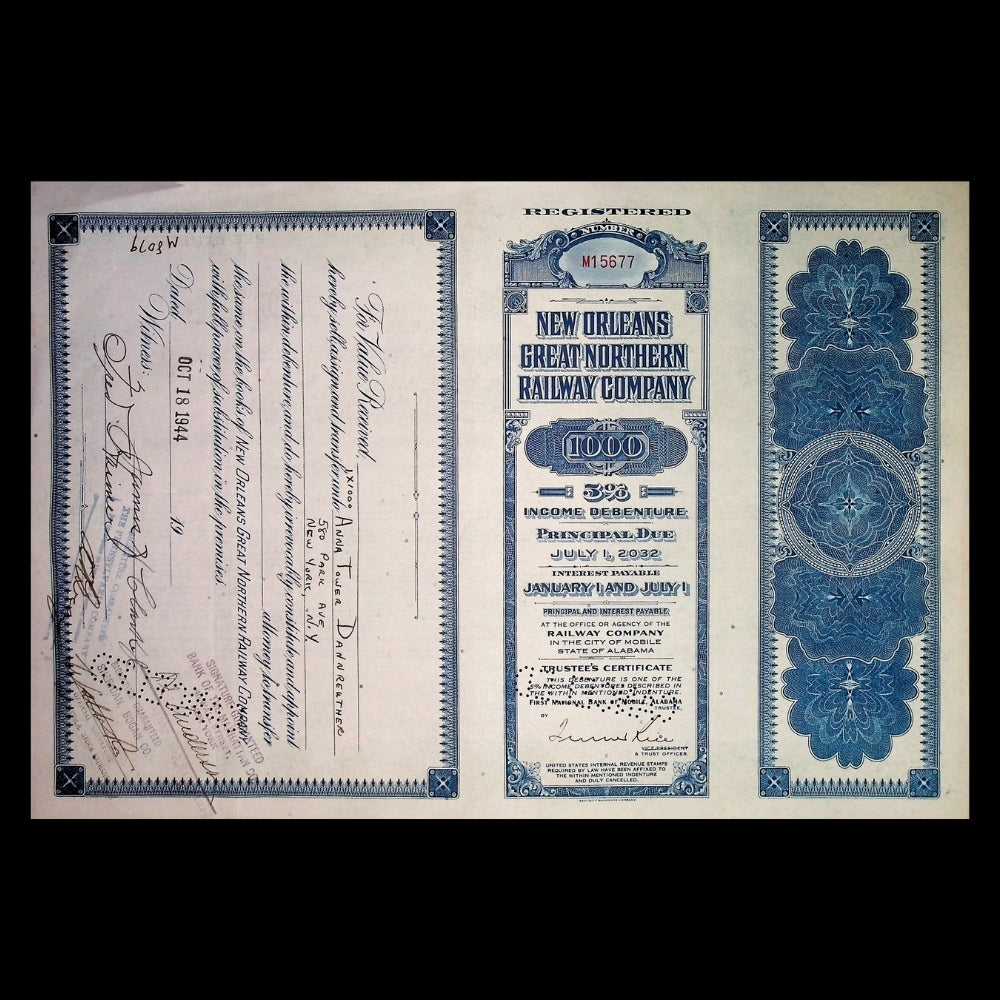 M3079
For Value Received,
hereby sell assign and transfer unto ANNA TOWER DANNREUTHER
1X1000
580 PARK AVE
NEW YORK, N.Y.
the within debenture, and do hereby irrevocably constitute and appoint
attorney to transfer
the same on the books of NEW ORLEANS GREAT NORTHERN RAILWAY COMPANY
with full power of substitution in the premises.
Dated OCT 18 1944 19
Witness:
SIGNATURE GUARANTEED
REGISTERED
NUMBER
M15677
NEW ORLEANS
GREAT NORTHERN
RAILWAY COMPANY
1000
5%
INCOME DEBENTURE
PRINCIPAL DUE
JULY 1, 2032
INTEREST PAYABLE
JANUARY 1 AND JULY 1
PRINCIPAL AND INTEREST PAYABLE
AT THE OFFICE OR AGENCY OF THE
RAILWAY COMPANY
IN THE CITY OF MOBILE
STATE OF ALABAMA
TRUSTEE'S CERTIFICATE
THIS DEBENTURE IS ONE OF THE
5% INCOME DEBENTURES DESCRIBED IN
THE WITHIN MENTIONED INDENTURE.
FIRST NATIONAL BANK OF MOBILE, ALABAMA
TRUSTEE,
BY
VICE PRESIDENT
& TRUST OFFICER.
UNITED STATES INTERNAL REVENUE STAMPS
REQUIRED BY LAW HAVE BEEN AFFIXED TO
THE WITHIN MENTIONED INDENTURE
AND DULY CANCELLED.
SECURITY BANKNOTE COMPANY